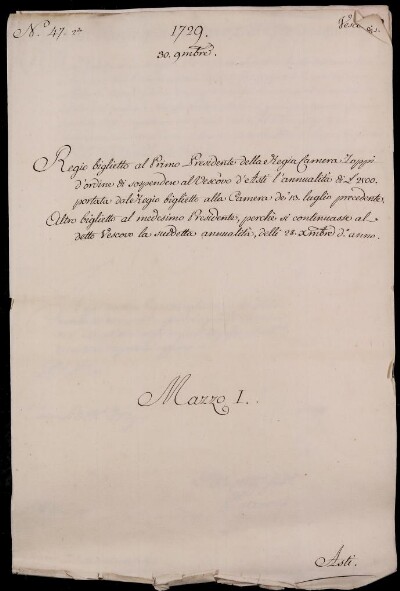 N.º 47.
1729.
30. 9mbre.
Regio biglietto al Primo Presidente della Regia Camera Zoppi
d'ordine di sospendere al Vescovo d'Asti l'annualità di L 2500.
portata dal Regio biglietto alla Camera de' 13. luglio precedente.
Altro biglietto al medesimo Presidente, perchè si continuasse al
detto Vescovo la suddetta annualità, delli 28. Xmbre d.º anno.
Mazzo I.
Asti.